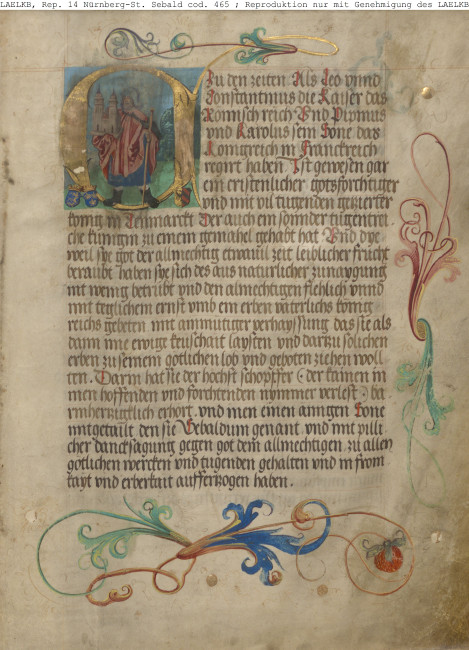 LAELKB, Rep. 14 Nürnberg-St. Sebald cod. 465 ; Reproduktion nur mit Genehmigung des LAELKB
Zu den zeiten Als Leo vnnd
Constantinus die Kaiser das
Romisch reich Vnd Pipinus
vnd Karolus sein Sone das
Konigreich in Franckreich
regirt haben Ist gewesen gar
ein cristenlicher gotsforchtiger
vnnd mit vil tugenden geczierter
konig in Tenmarckt Der auch ein sonnder tugentrei
che kunigin zu einem gemahel gehabt hat Vnd dye
weil sye got der allmechtig etwauil zeit leiblicher frucht
beraubt haben sye sich des aus naturlicher zunaygung
nit wenig betrubt vnd den almechtigen flehlich vnnd
mit teglichem ernst vmb ein erben vaterlichs konig
reichs gebeten mit anmutiger verhayssung das sie als
dann ime ewige keuschait laysten vnd darzu solichen
erben zu seinem gotlichen lob vnd geboten ziehen woll
ten. Darin hat sie der hochst schopffer (: der kainen in
inen hoffenden vnd forchtenden nymmer verlest :) ba
rmhertzigklich erhort, vnd inen einen ainigen Sone
mitgetailt den sie Sebaldum genant vnd mit vilfl
cher dancksagung gegen got dem allmechtigen, zu allen
gotlichen wercken vnd tugenden gehalten vnd in from
kayt vnd erberkait aufferzogen haben.